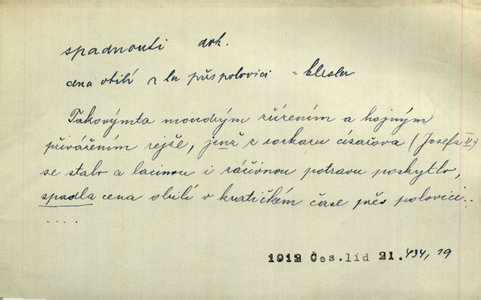 spadnouti dok.
cena obilí z la přes polovici = klesla
Takovýmto moudrým řízením a hojným
přivážením rejže, jenž z rozkazu císařova (Josefa II.)
se stalo a lacinou i záživnou potravu poskytlo,
spadla cena obilí v kratičkém čase přes polovici..
. . . .
1912 Čes.lid 21. 434, 19